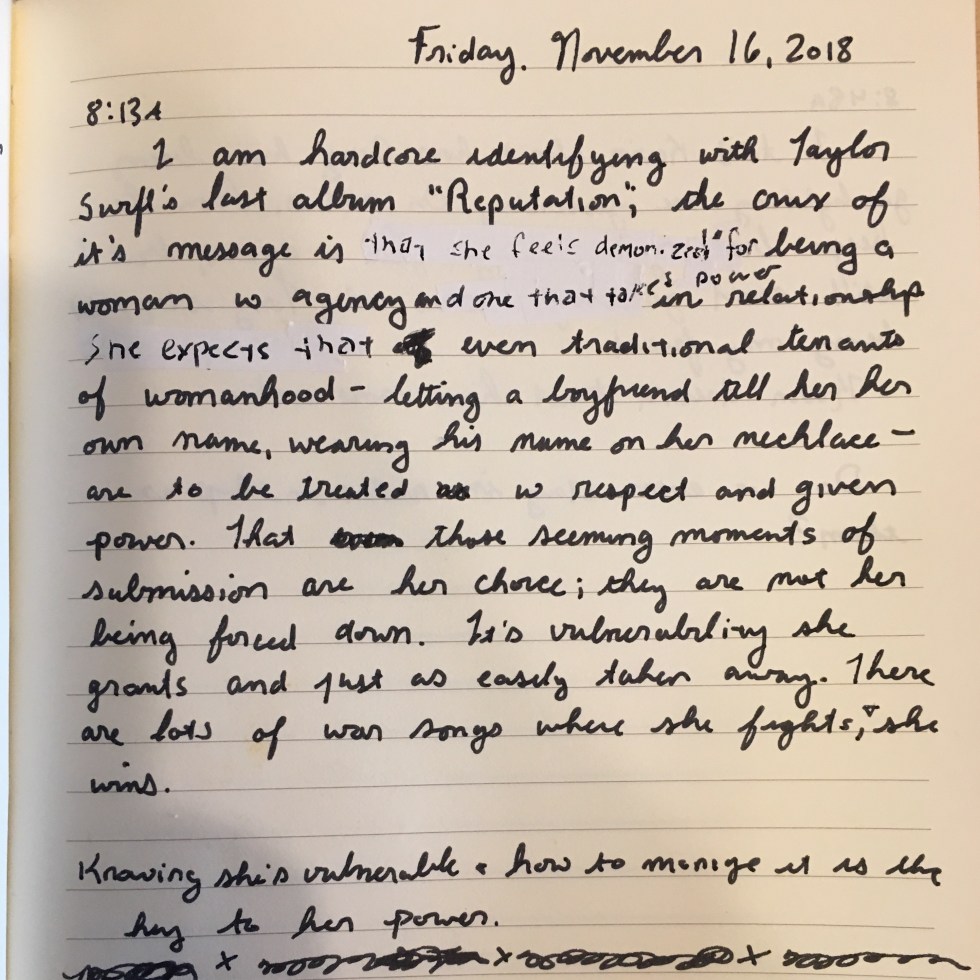 Friday, November 16, 2018
8:13A
I am hardcore identifying with Taylor
Swift's last album "Reputation"; the crux of
it's message is that she feels demonized for being a
woman w agency and one that takes power in relationship
She expects that even traditional tenants
of womanhood - letting a boyfriend tell her her
own name, wearing his name on her necklace -
are to be treated w respect and given
power. That those seeming moments of
submission are her choice; they are not her
being forced down. It's vulnerability she
grants and just as easily taken away. There
are lots of war songs where she fights, + she
wins.
Knowing she's vulnerable & how to manige it is the
key to her power.